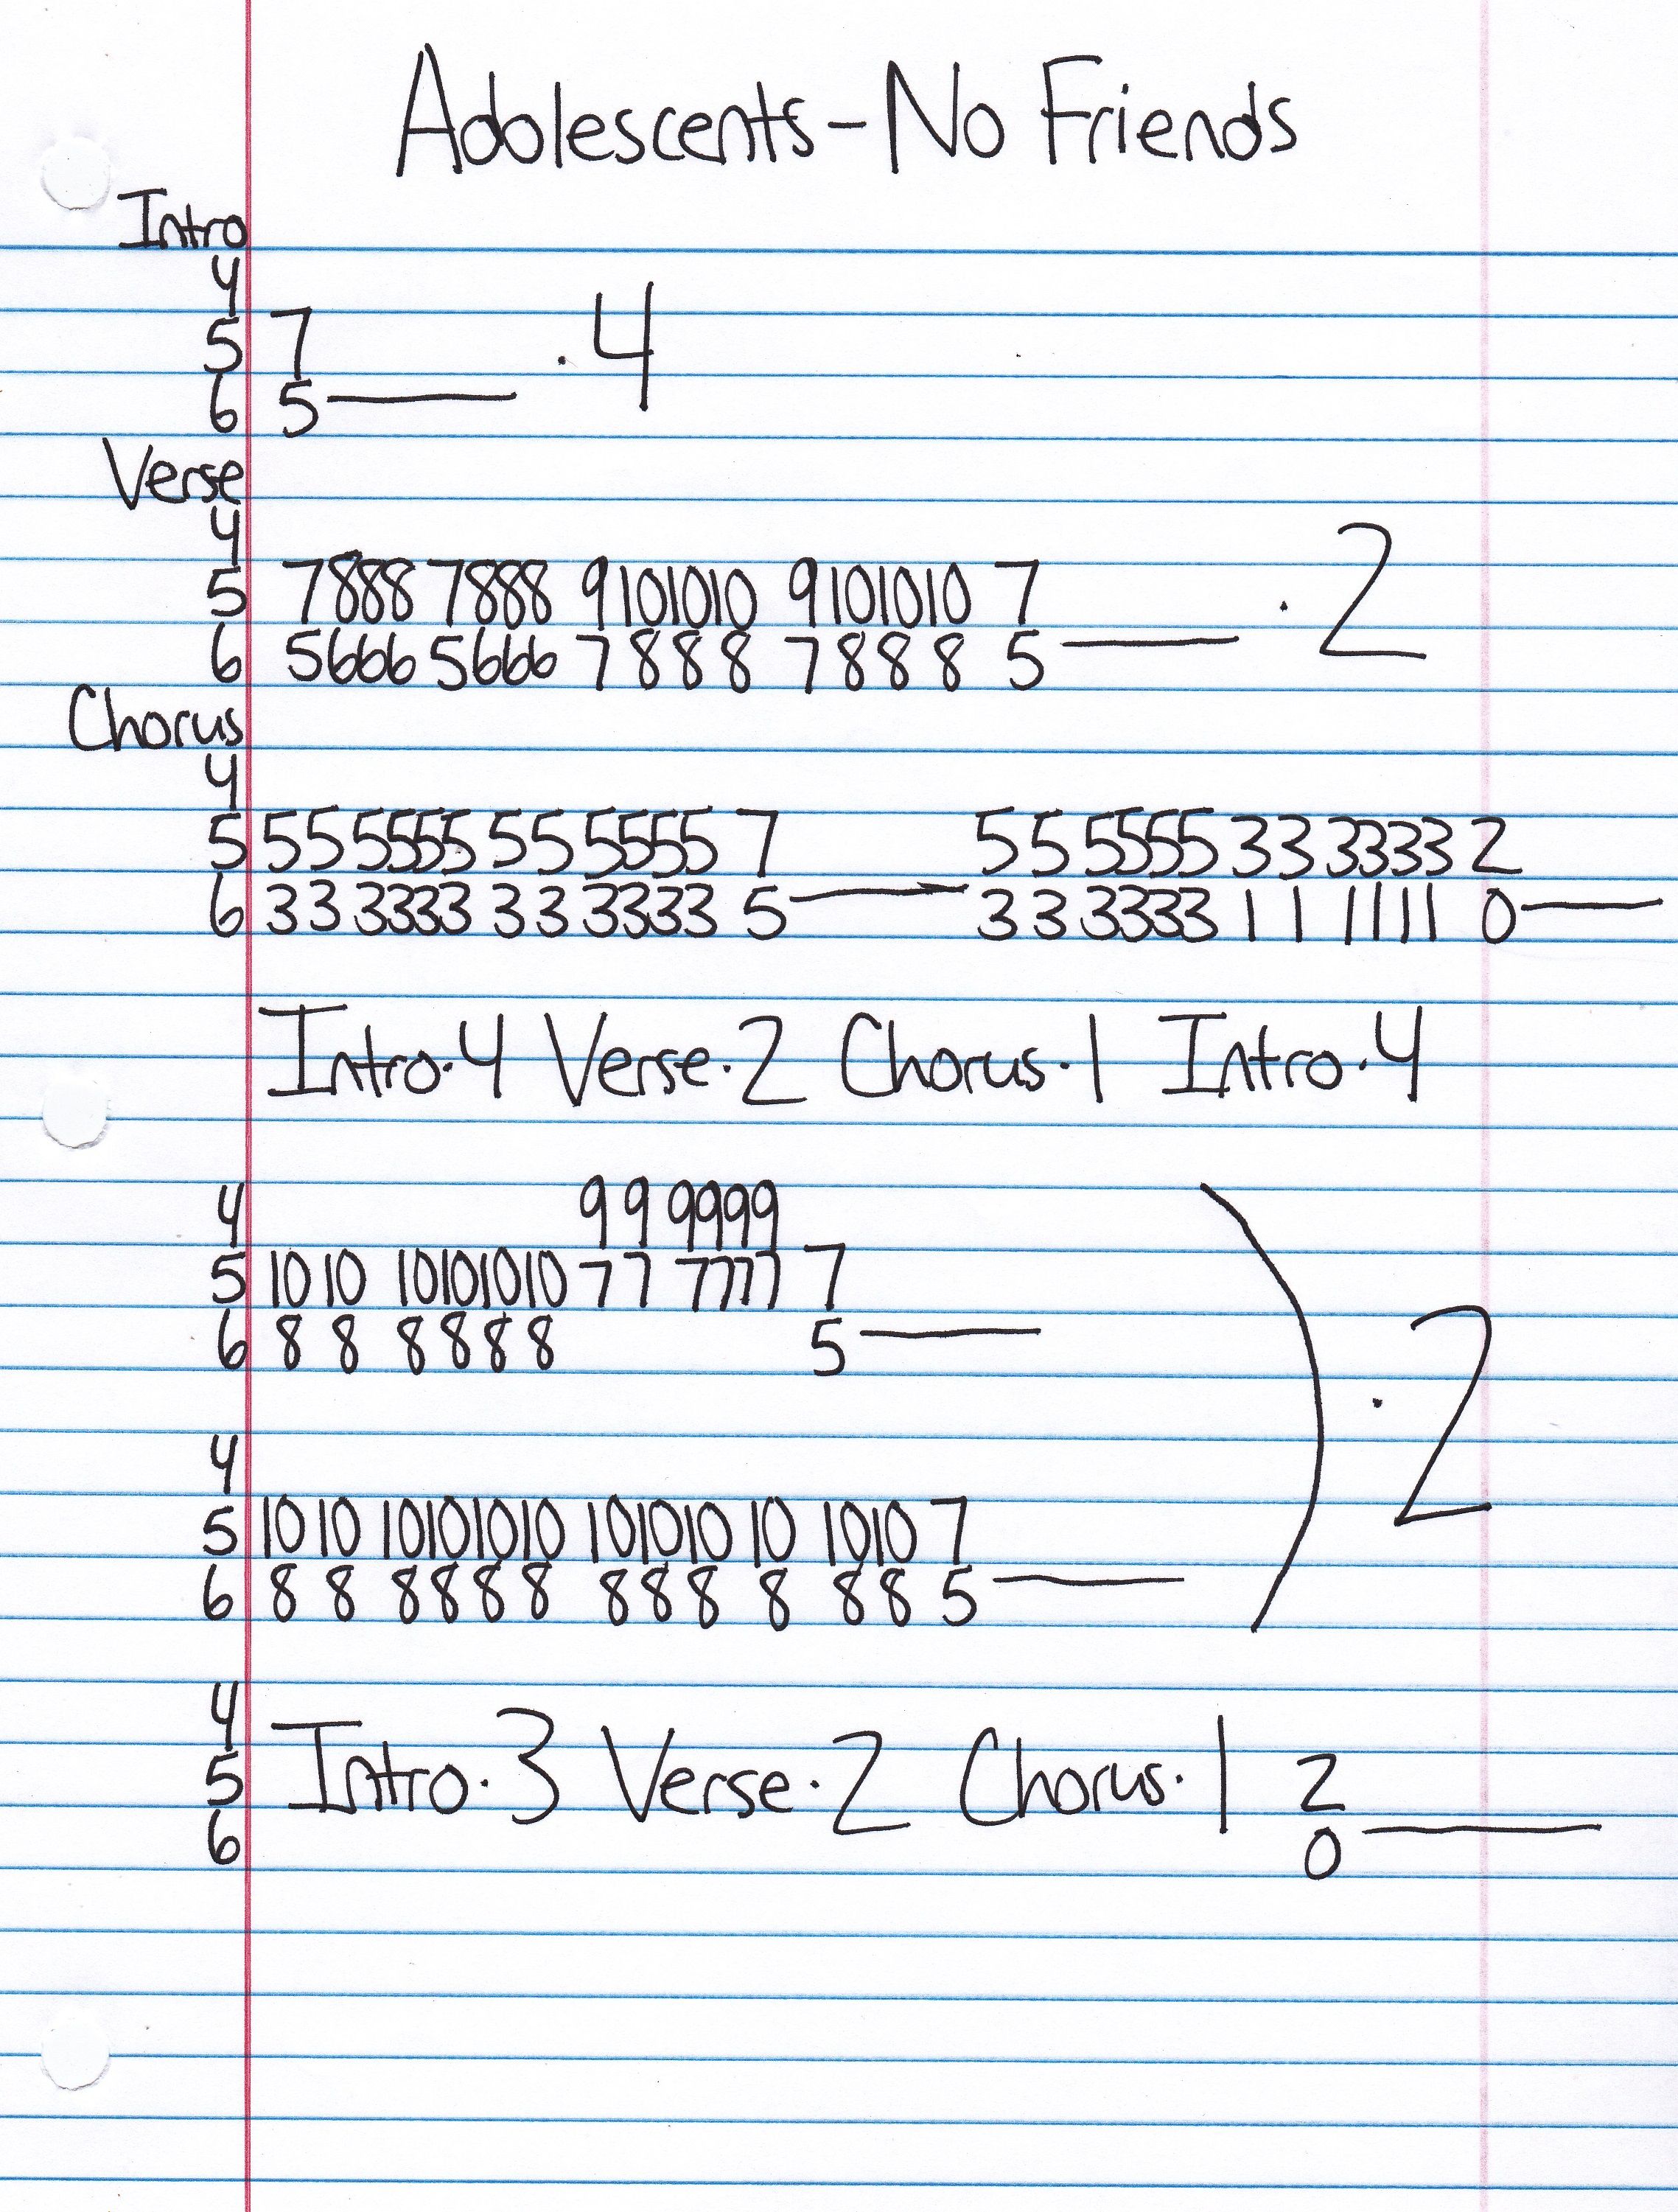 Adolescents - No Friends
Intro
4
5 7
6 5 —— · 4
Verse
4
5 7888 7888 9101010 9101010 7
6 5666 5666 7888 7888 5 —— · 2
Chorus
4
5 55 5555 55 5555 7 55 5555 33 3333 2
6 33 3333 33 3333 5 —— 33 3333 11 1111 0 ——
Intro·4 Verse·2 Chorus·1 Intro·4
4 99 9999
5 1010 10101010 77 7777 7
6 88 8888 5 ——
4
5 1010 10101010 101010 10 1010 7
6 88 8888 888 8 88 5 —— ) · 2
4
5 Intro·3 Verse·2 Chorus·1 2
6 0 ——